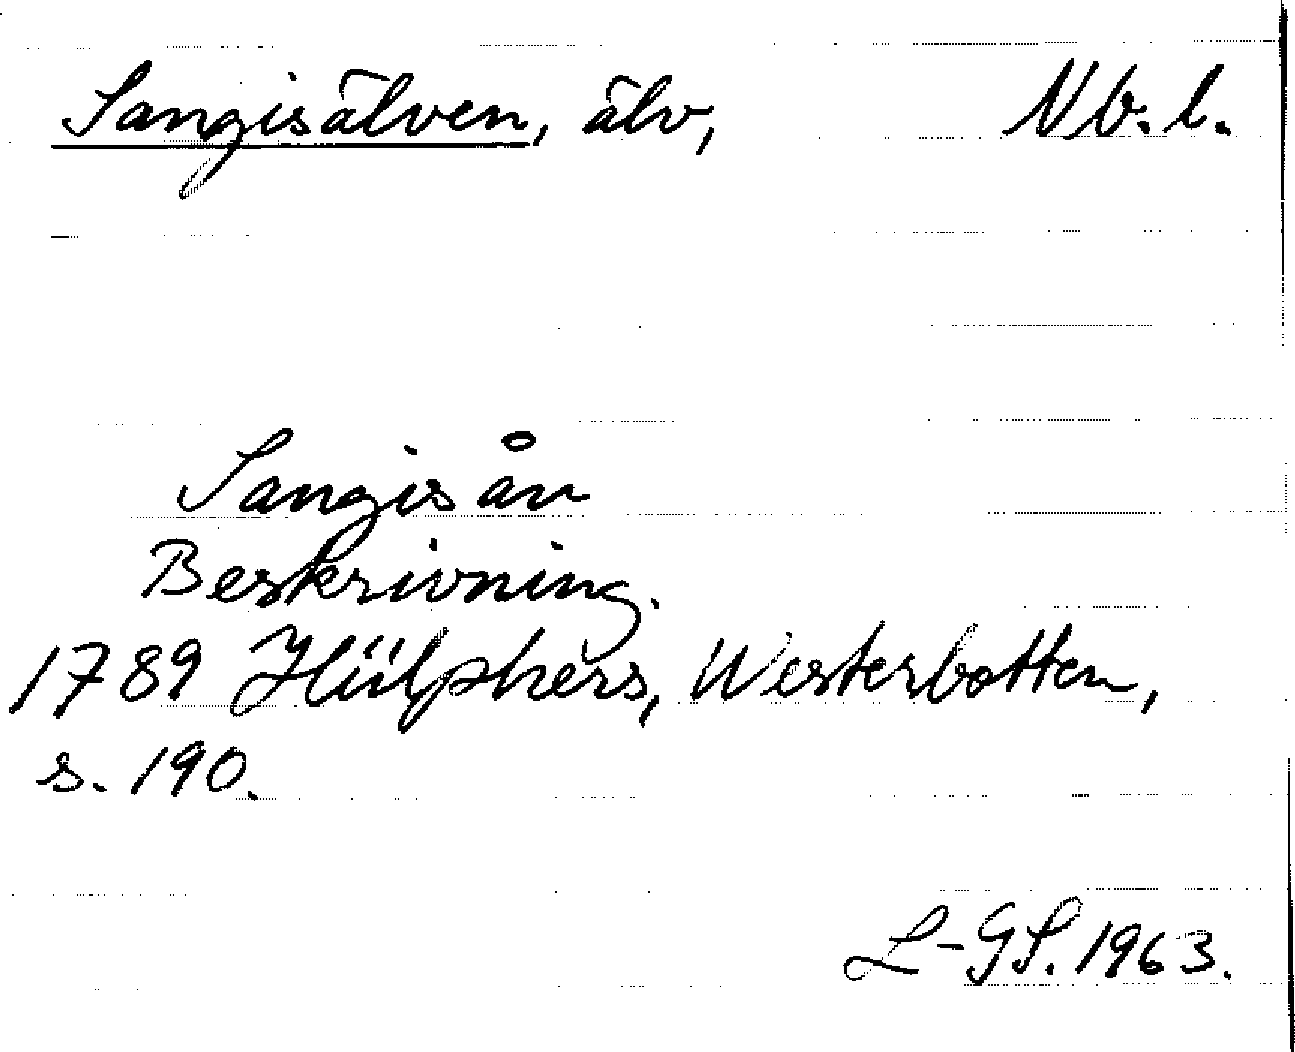 Sangisälven, älv, Nb. l.
Sangisån
Beskrivning.
1789 Hülphers, Westerbotten,
s. 190.
L-GS. 1963.